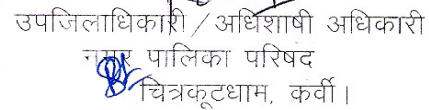 उपजिलाधिकारी / अधिशाषी अधिकारी
नगर पालिका परिषद
चित्रकूटधाम, कर्वी।